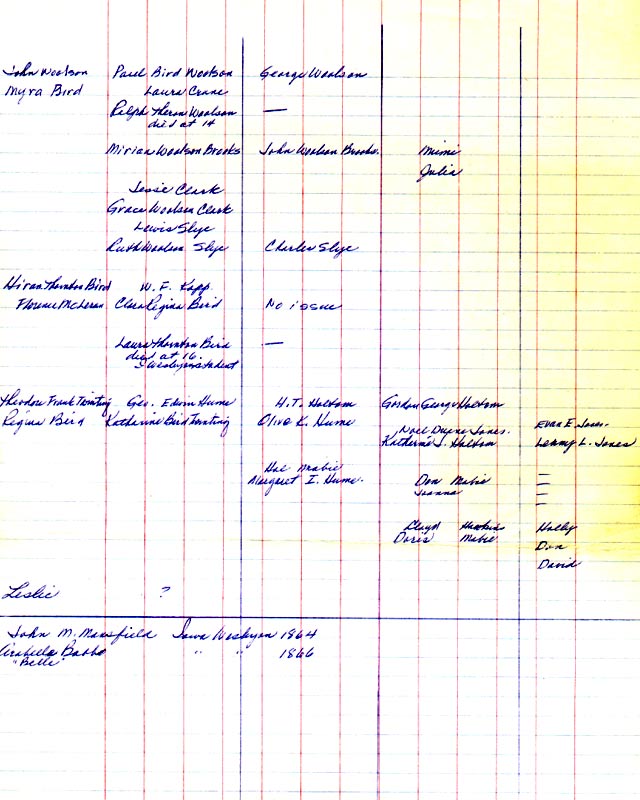 John Woolson Paul Bird Woolson George Woolson
Myra Bird Laura Crane
Ralph Theron Woolson —
died at 14
Miriam Woolson Brooks John Woolson Brooks. Mimi
Julia
Jessie Clark
Grace Woolson Clark
Lewis Slye
Ruth Woolson Slye Charles Slye
Hiram Thornton Bird W. F. Kopp
Florence McLeran Clara Regina Bird No issue
Laura Thornton Bird —
died at 16.
Wesleyan student
Theodore Frank Geo. Edwin Hume H.T. Holtom Gordon George Holtom
Regina Bird Katharine Bird Olive K. Hume Noel Duane Jones. Evan E. Jones.
Katherine J. Holtom Lenny L. Jones
Hal Mabie
Margaret I. Hume. Don Mabie —
Joanna —
—
Lloyd Hawkins Holly
Doris Mabie Don
David
Leslie ?
John M. Mansfield Iowa Wesleyan 1864
Arabella Babb " " 1866
"Belle"